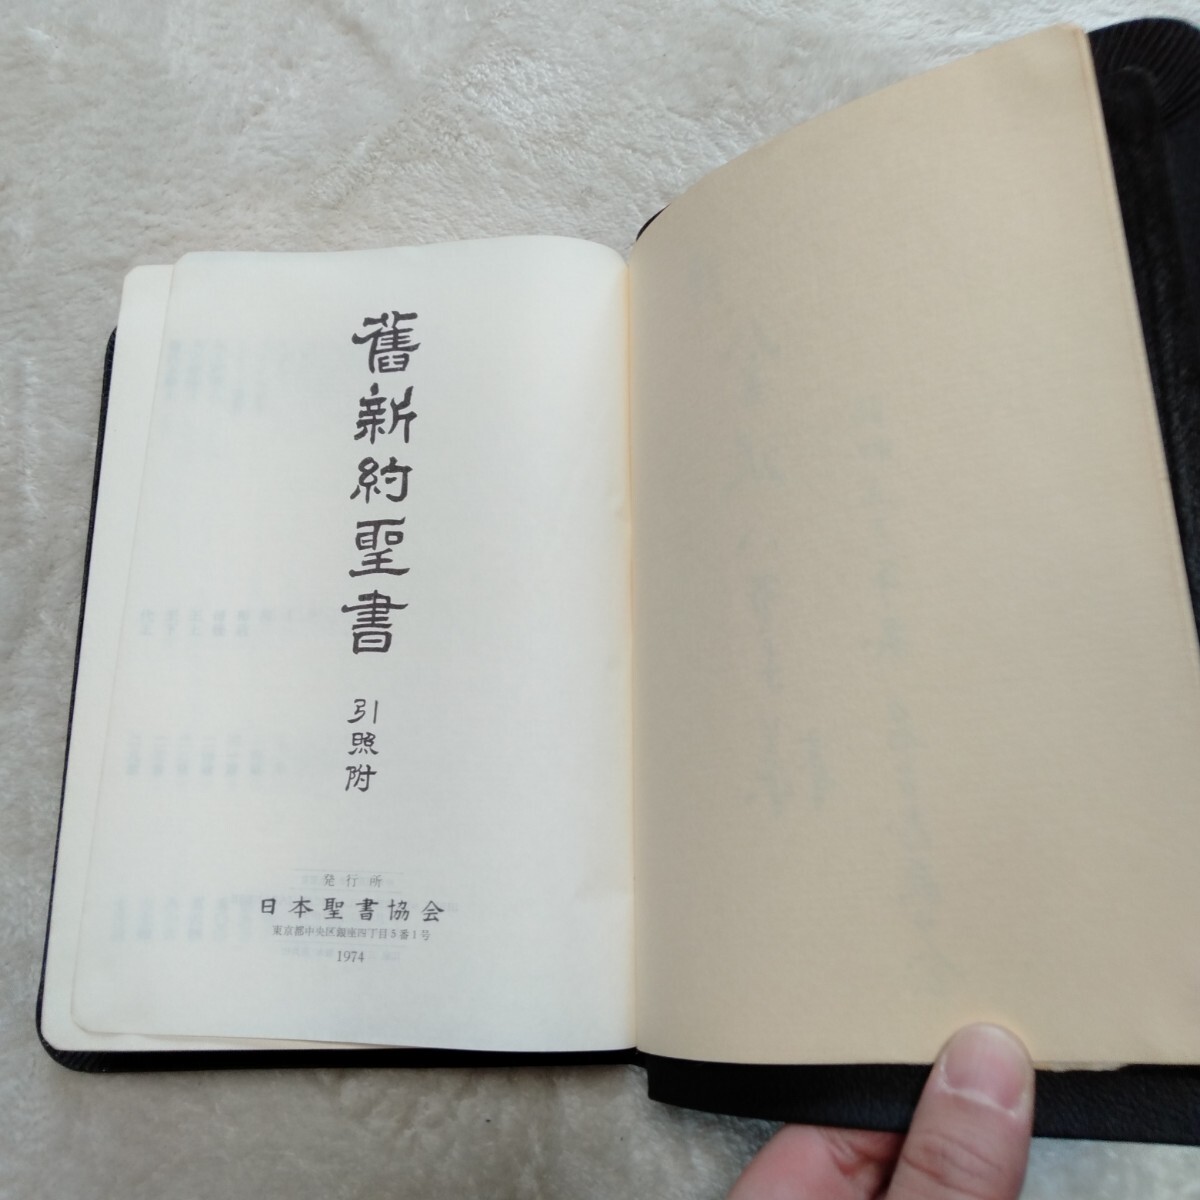 舊新約聖書
引照附
発行所
日本聖書協会
東京都中央区銀座四丁目5番1号
1974